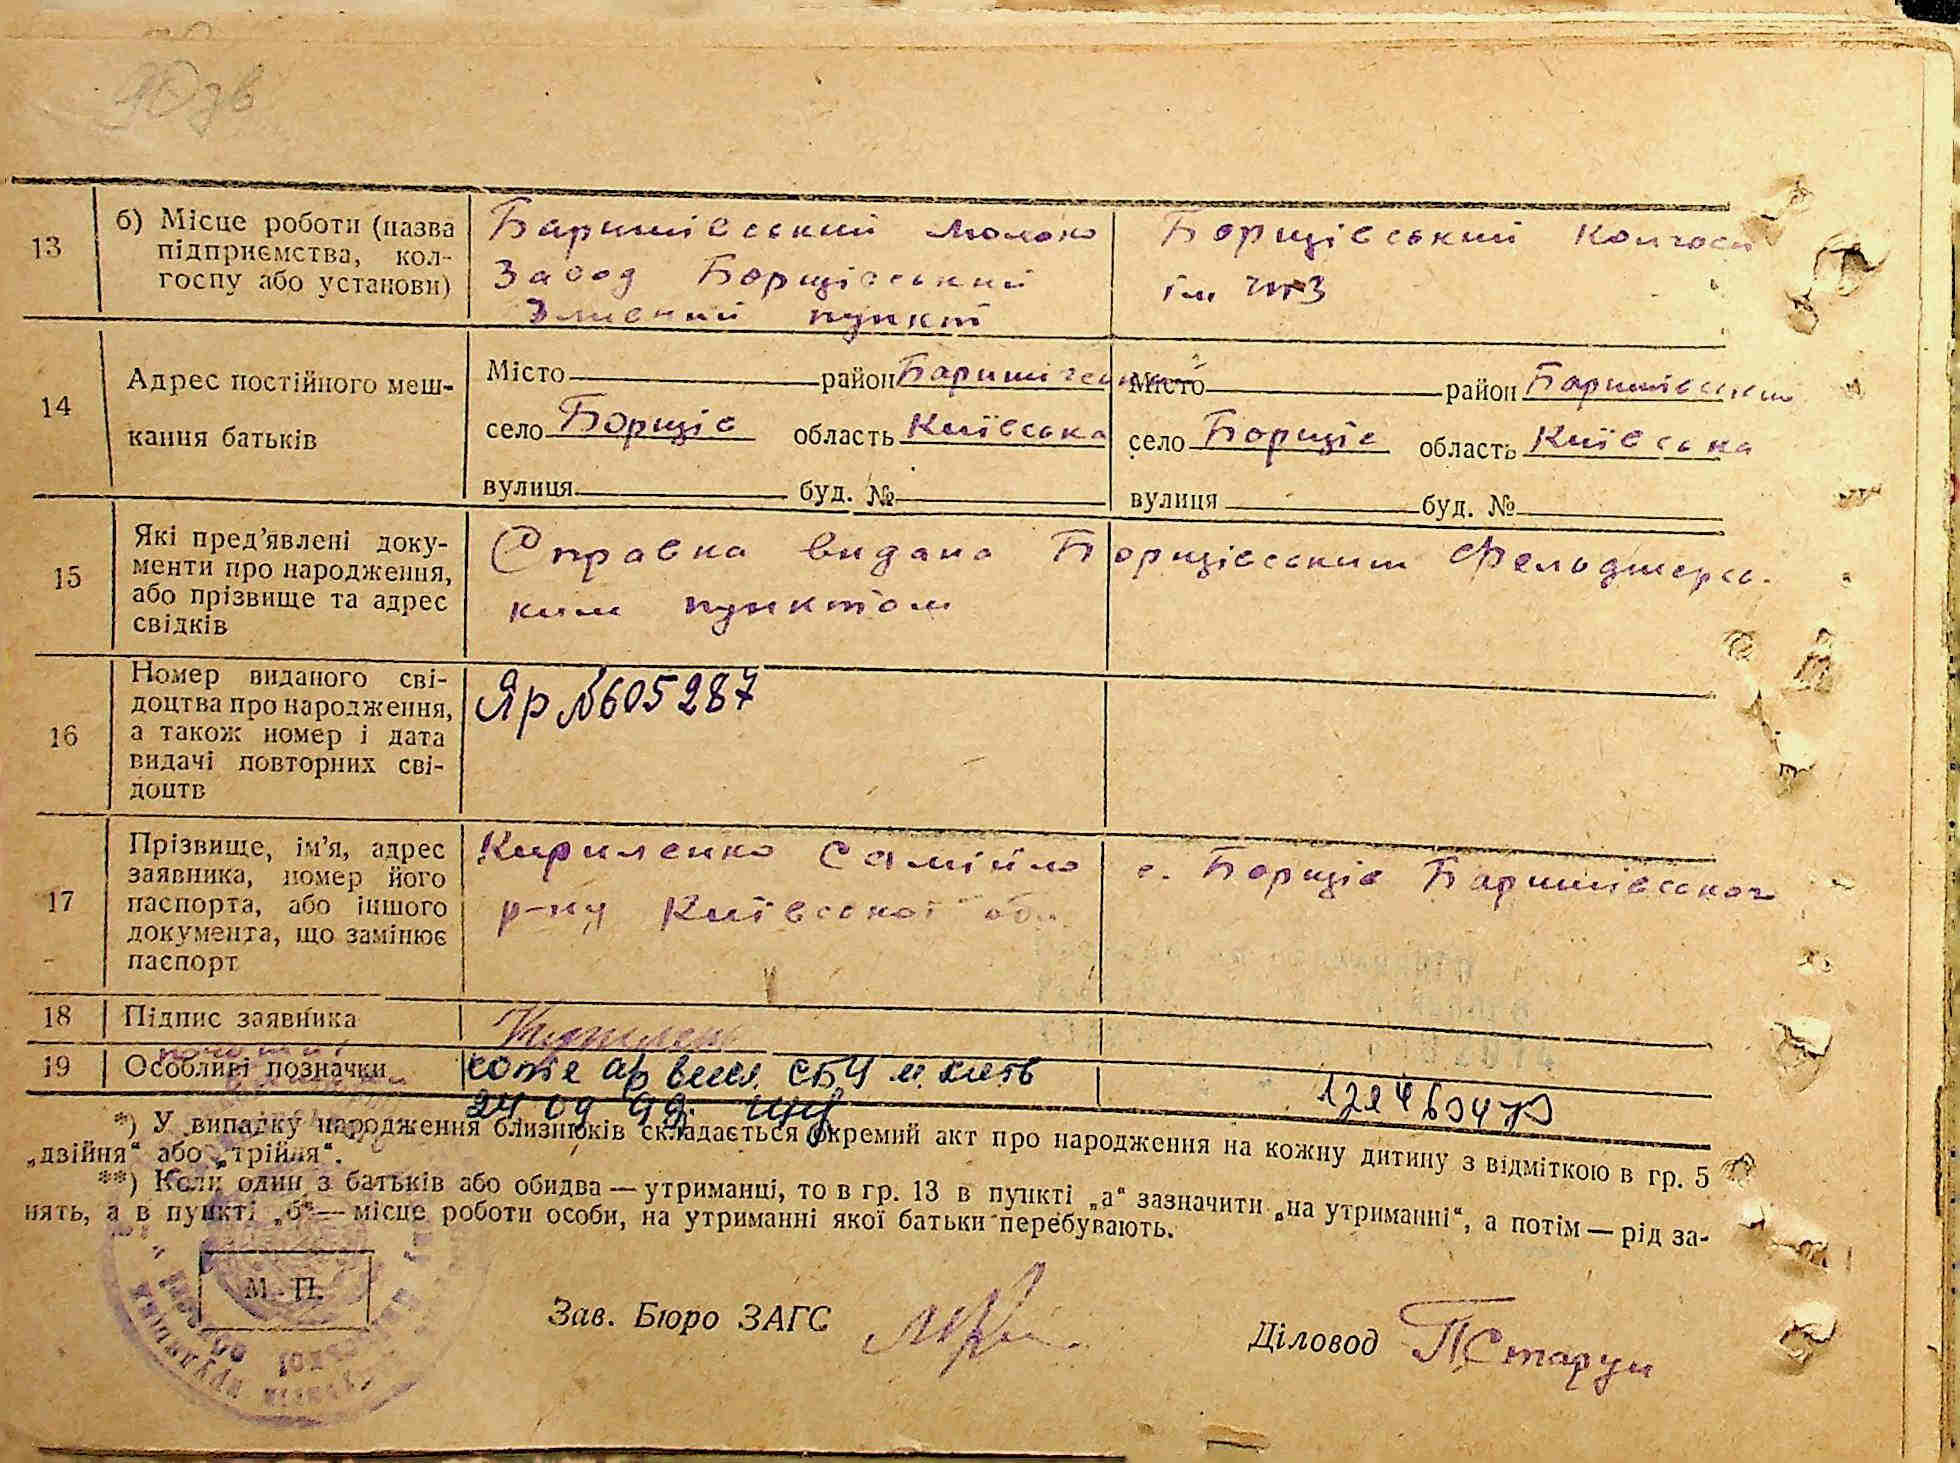 13
б) Місце роботи (назва
підприємства, кол-
госпу або установи)
Баришівський молоко
Завод Борщівський
Зливний пункт
Борщівський колгосп
ім
14
Адрес постійного меш-
кання батьків
Місто район Баришівський
село Борщів область Київська
вулиця буд. №
Місто район Баришівський
село Борщів область Київська
вулиця буд. №
15
Які пред’явлені доку-
менти про народження,
або прізвище та адрес
свідків
Справка видана Борщівським Фельдшерсь-
ким пунктом
16
Номер виданого сві-
доцтва про народження,
а також номер і дата
видачі повторних сві-
доцтв
Яр №605287
17
Прізвище, ім’я, адрес
заявника, номер його
паспорта, або іншого
документа, що замінює
паспорт
Кириленко Самійло с. Борщів Баришівського
р-ну Київської обл
18
Підпис заявника
19
Особливі позначки
24 09 99
*) У випадку народження близнюків складається окремий акт про народження на кожну дитину з відміткою в гр. 5
„двійня“ або „трійня“.
**) Коли один з батьків або обидва — утриманці, то в гр. 13 в пункті „а“ зазначити „на утриманні“, а потім — рід за-
нять, а в пункті „б“ — місце роботи особи, на утриманні якої батьки перебувають.
М. П.
Зав. Бюро ЗАГС
Діловод